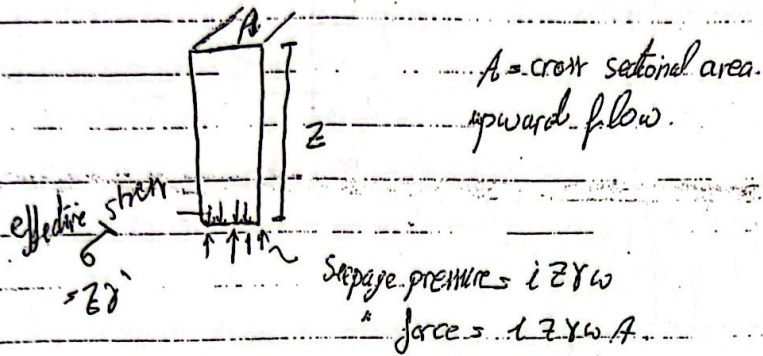 A
A = cross sectional area.
upward flow.
Z
effective stress
σ'
= Zγ'
Seepage pressure = i Z γω
" force = i Z γω A.